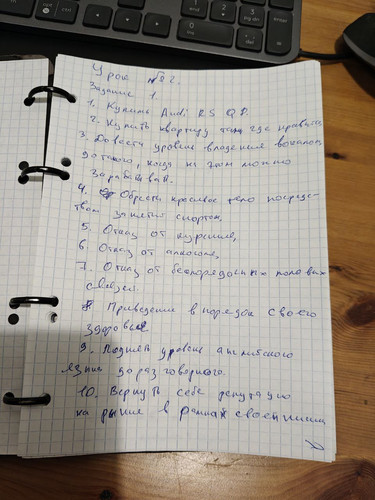 Урок №2.
Задание 1.
1. Купить Audi RS Q8.
2. Купить квартиру там где нравится
3. Довести уровень владения вокалом
до такого, когда на этом можно
зарабатывать.
4. Обрести красивое тело посредс-
твом занятия спортом,
5. Отказ от курения,
6. Отказ от алкоголя,
7. Отказ от беспорядочных половых
связей.
8 Приведение в порядок своего
здоровья
9. Поднять уровень английского
языка до разговорного.
10. Вернуть себе репутацию
на рынке в рамках своей ниши